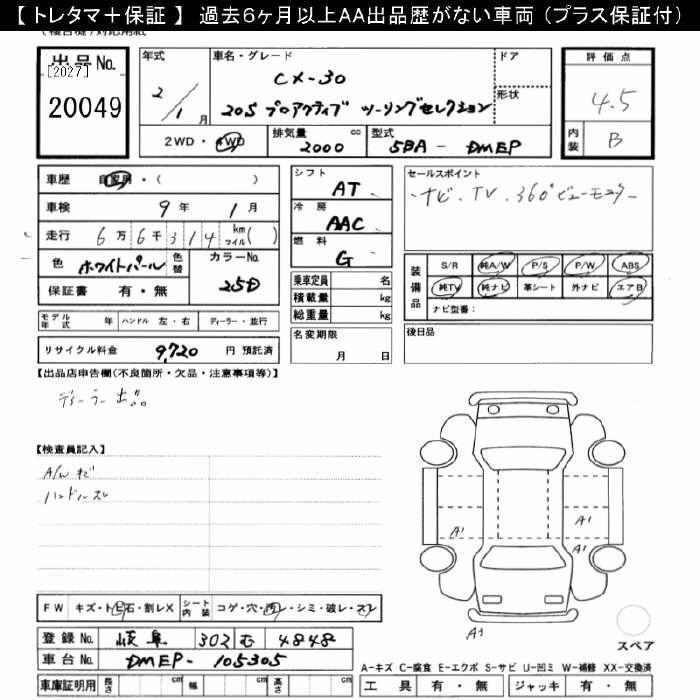 【 トレタマ＋保証 】 過去6ヶ月以上AA出品歴がない車両 (プラス保証付)
出品No.
[2027]
20049
年式
2/1月
車名・グレード
CX-30
20S プロアクティブ ツーリングセレクション
ドア
形状
評価点
4.5
内装
B
2WD・4WD
排気量
2000
cc
型式
5BA - DMEP
車歴
自家用・( )
車検
9年 1月
走行
6万6千314 km マイル( )
色
ホワイトパール
色替
カラーNo.
25D
保証書
有・無
シフト
AT
冷房
AAC
燃料
G
セールスポイント
ナビ、TV、360°ビューモニター
乗車定員
名
積載量
kg
総重量
kg
装備品
S/R 純A/W P/S P/W ABS
純TV 純ナビ 革シート 外ナビ エアB
ナビ型番：
モデル年式
年
ハンドル 左・右
ディーラー・並行
名変期限
月 日
後日品
リサイクル料金
9,720
円 預託済
【出品店申告欄(不良箇所・欠品・注意事項等)】
ディーラー出品。
【検査員記入】
A/Wキズ
ハンドルスレ
A1
A1
A1
A1
スペア
FW キズ・トビ石・割レX
シート内装
コゲ・穴・汚レ・シミ・破レ・スレ
登録No.
岐阜 302 む 4848
車台No.
DMEP-105305
車庫証明用
長さ
cm
幅
cm
高さ
cm
A-キズ C-腐食 E-エクボ S-サビ U-凹ミ W-補修 XX-交換済
工具 有・無
ジャッキ 有・無